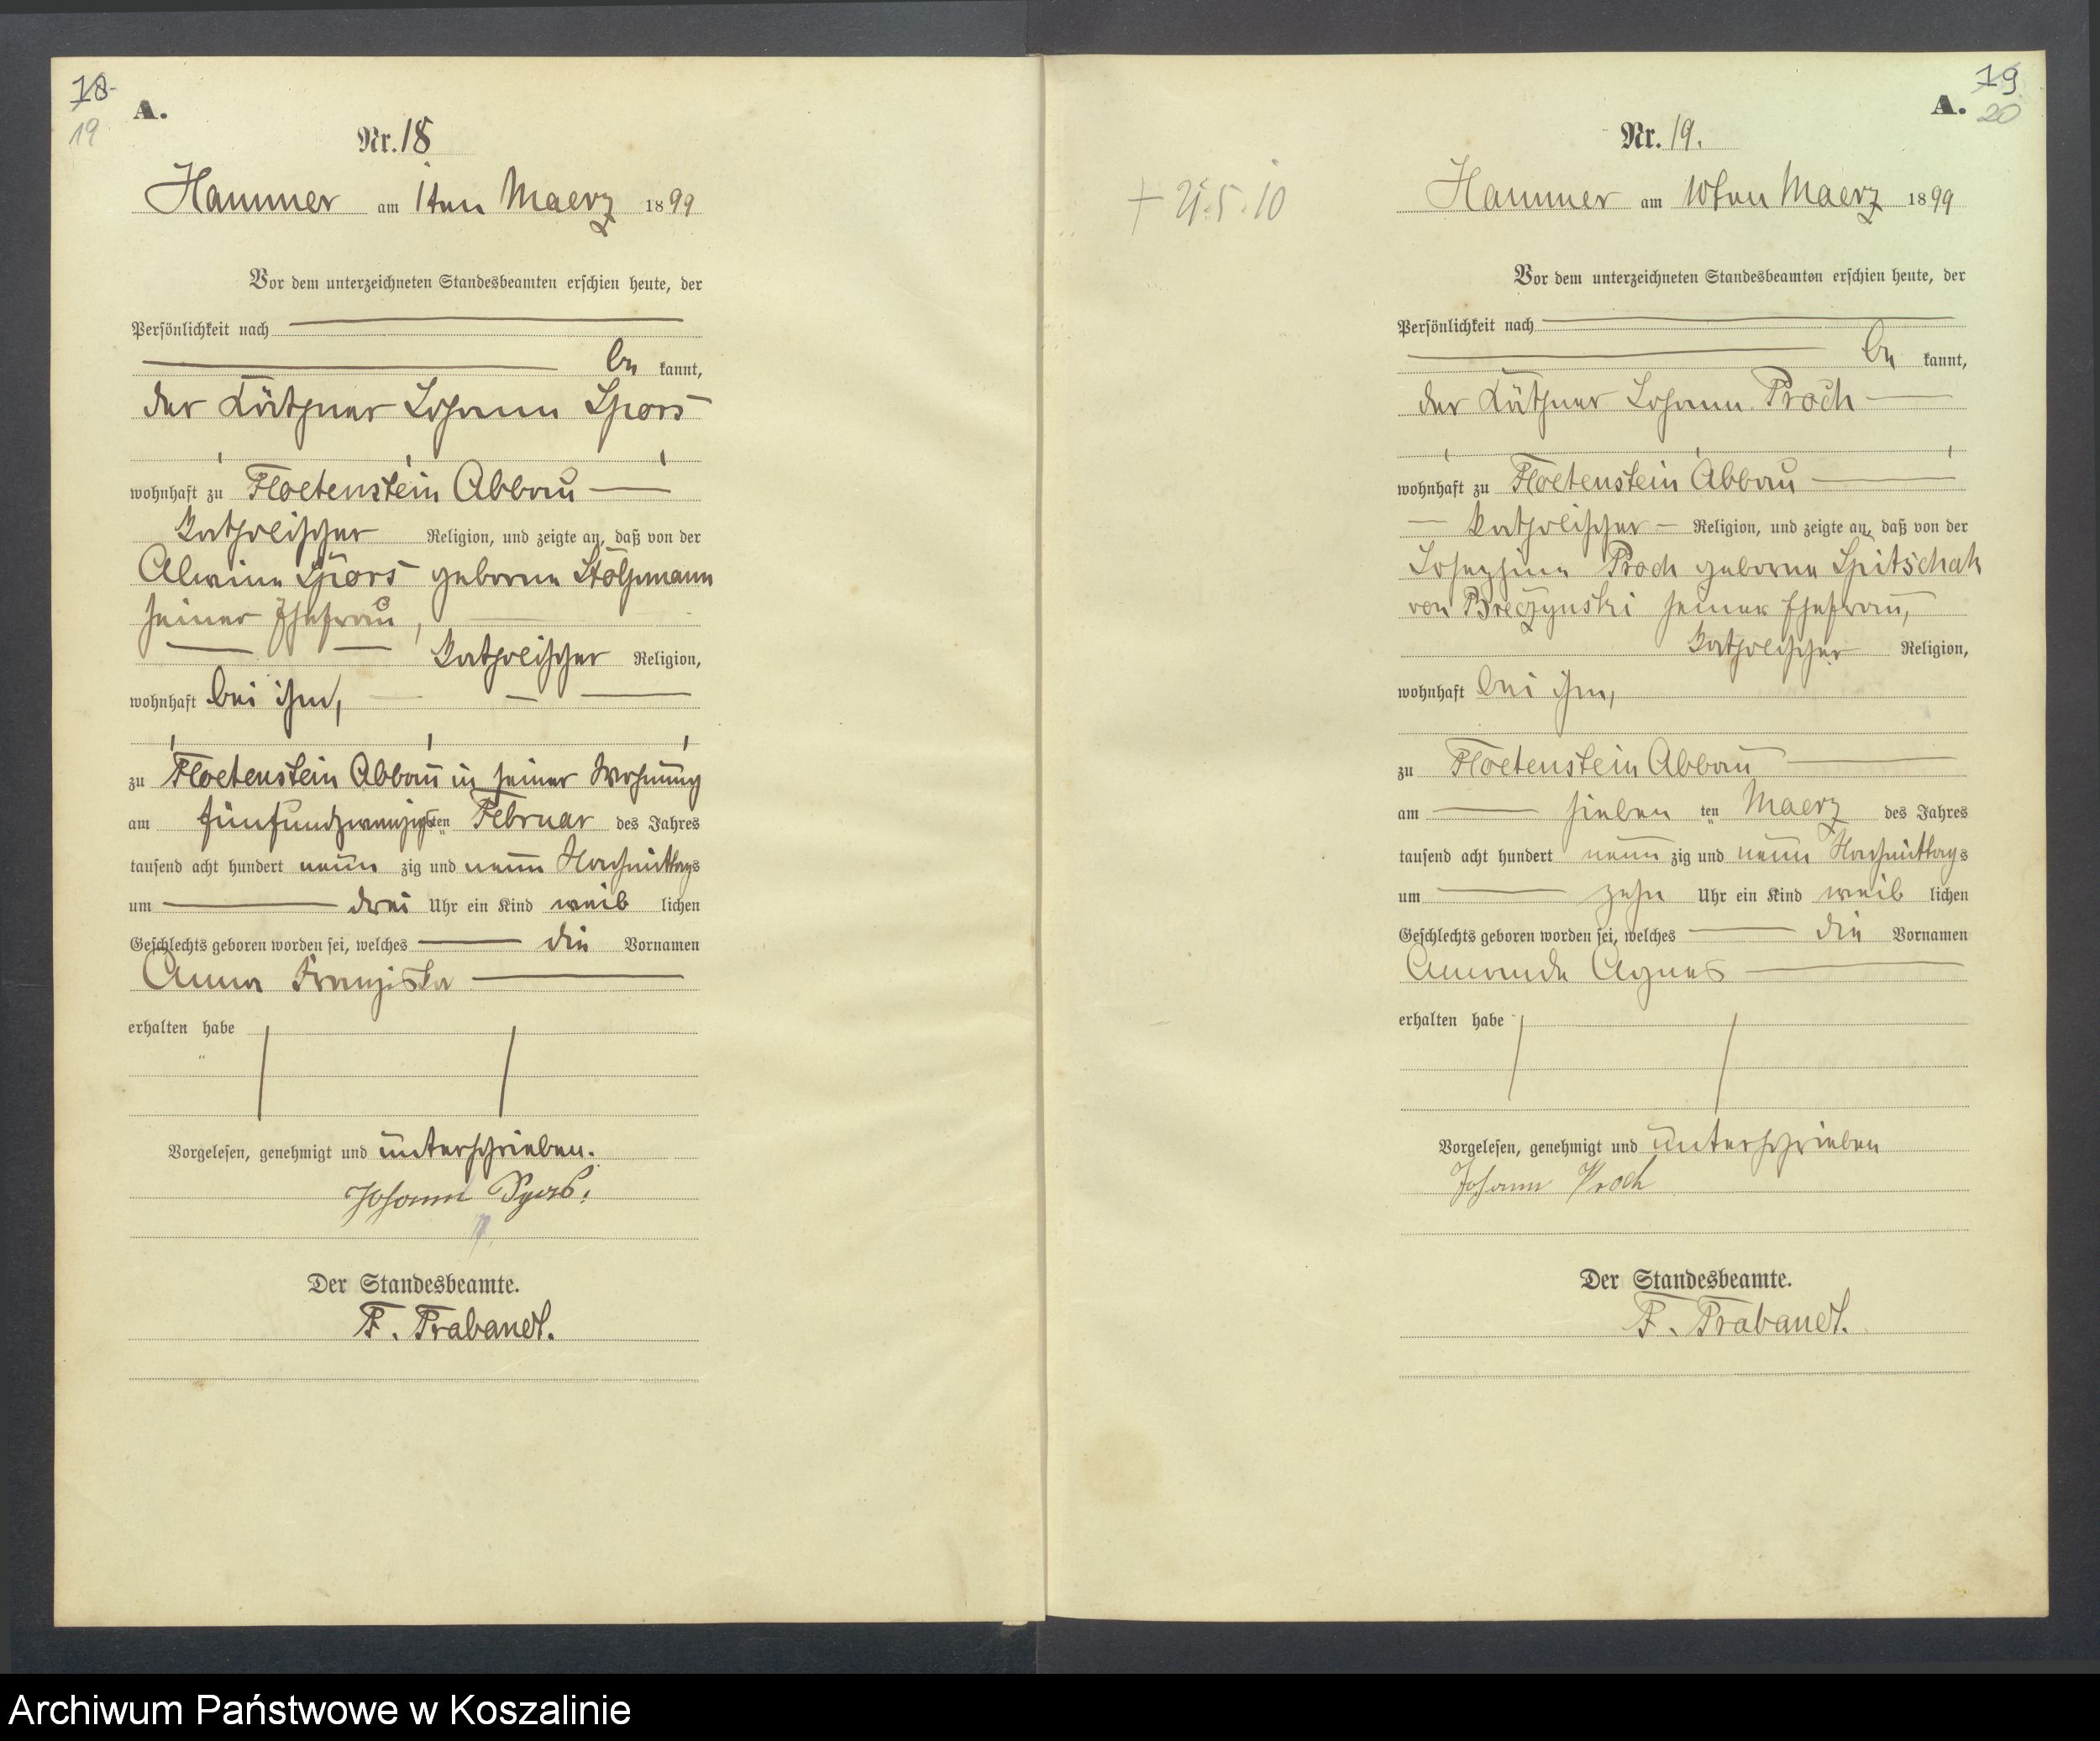 18
19
A.
Nr. 18
Hammer am 1ten Maerz 1899
Vor dem unterzeichneten Standesbeamten erschien heute, der
Persönlichkeit nach
be kannt,
der Käthner Johann Spors
wohnhaft zu Floetenstein Abbau
katholischer Religion, und zeigte an, daß von der
Alwine Spors geborne Stolpmann
seiner Ehefrau,
katholischer Religion,
wohnhaft bei ihm,
zu Floetenstein Abbau in seiner Wohnung
am fünfundzwanzigsten Februar des Jahres
tausend acht hundert neun zig und neun Nachmittags
um drei Uhr ein Kind weib lichen
Geschlechts geboren worden sei, welches die Vornamen
Anna Franziska
erhalten habe
Vorgelesen, genehmigt und unterschrieben.
Johann Spors.
Der Standesbeamte.
F. Trabandt.
19
A. 20
Nr. 19.
Hammer am 10ten Maerz 1899
Vor dem unterzeichneten Standesbeamten erschien heute, der
Persönlichkeit nach
be kannt,
der Käthner Johann Proch
wohnhaft zu Floetenstein Abbau
katholischer Religion, und zeigte an, daß von der
Josephine Proch geborne Spitschak
von Breczynski seiner Ehefrau,
katholischer Religion,
wohnhaft bei ihm,
zu Floetenstein Abbau
am sieben ten Maerz des Jahres
tausend acht hundert neun zig und neun Nachmittags
um zehn Uhr ein Kind weib lichen
Geschlechts geboren worden sei, welches die Vornamen
Amanda Agnes
erhalten habe
Vorgelesen, genehmigt und unterschrieben
Johann Proch
Der Standesbeamte.
F. Trabandt.
Archiwum Państwowe w Koszalinie